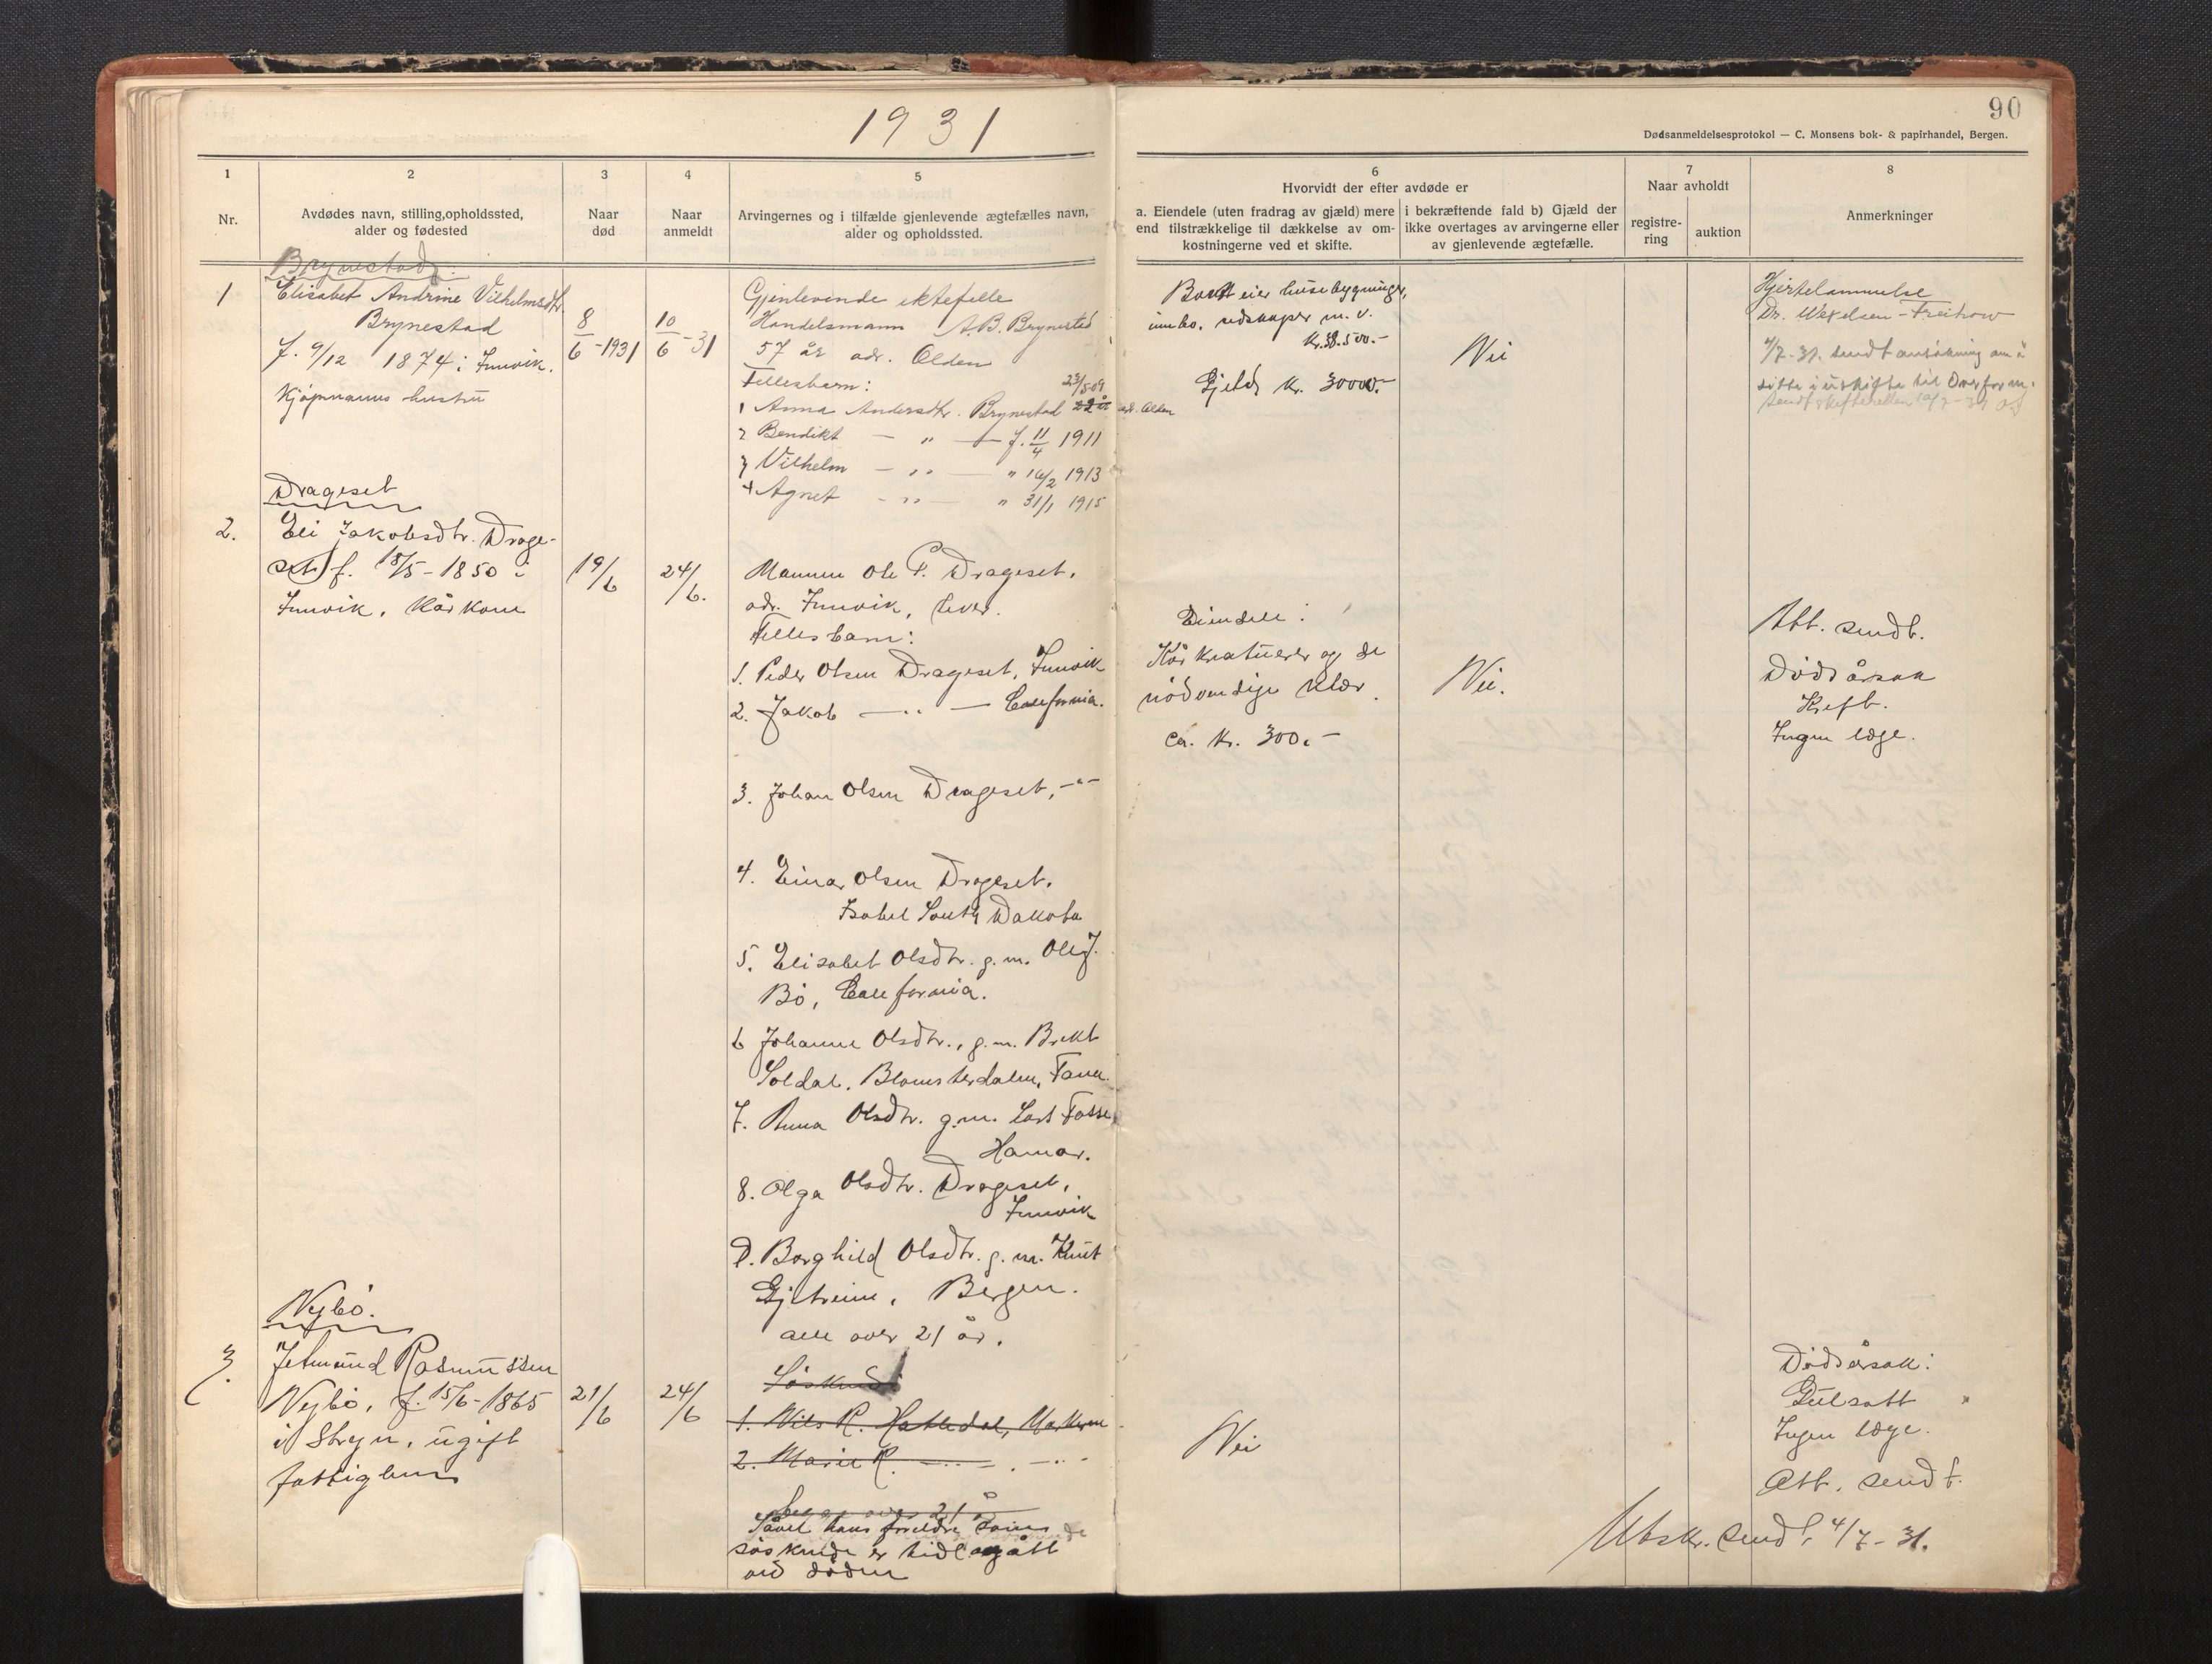 1931
90
Dødsanmeldelsesprotokol — C. Monsens bok- & papirhandel, Bergen.
1
2
3
4
5
6
7
8
Nr.
Avdødes navn, stilling, opholdssted,
alder og fødested
Naar
død
Naar
anmeldt
Arvingernes og i tilfælde gjenlevende ægtefælles navn,
alder og opholdssted.
Hvorvidt der efter avdøde er
a. Eiendele (uten fradrag av gjæld) mere
end tilstrækkelige til dækkelse av om-
kostningerne ved et skifte.
i bekræftende fald b) Gjæld der
ikke overtages av arvingerne eller
av gjenlevende ægtefælle.
Naar avholdt
registre-
ring
auktion
Anmerkninger
Brynestad.
1
Elisabet Andrine Vilhelmsdtr.
Brynestad
f. 9/12 1874 i Innvik.
Kjøpmanns hustru
8/6-1931
10/6-31
Gjenlevende ektefelle
Handelsmann A.B. Brynestad
57 år adr. Olden
Fellesbarn:
23/5-09
1 Anna Andersdtr. Brynestad 22 år adr. Olden
2 Bendikt — " — f. 11/4 1911
3 Vilhelm — " — " 16/2 1913
4 Agnet — " — " 31/1 1915
Boet eier husebygninger,
innbo, redskaper m. v.
Kr. 38.500.-
Gjeld kr. 30000.-
Nei
Hjertelammelse
Dr. Wexelsen-Freihow
4/7-31. sendt ansökning om å
sitte i uskifte til Overform.
Drageset
2.
Eli Jakobsdtr. Drage-
set f. 18/5-1850 i
Innvik, Kårkone
19/6
24/6.
Mannen Ole P. Drageset.
adr. Innvik, lever.
Fellesbarn:
1. Peder Olsen Drageset, Innvik
2. Jakob — " — California.
3. Johan Olsen Drageset, -"-
4. Einar Olsen Drageset.
Isabel South Dakota
5. Elisabet Olsdtr. g.m. Ole J.
Bö, California.
6 Johanne Olsdtr., g.m. Brikt
Soldal. Blomsterdalen, Fana.
7. Anna Olsdtr. g.m. Lars Fosse
Hamar.
8. Olga Olsdtr. Drageset,
Innvik
9. Borghild Olsdtr. g.m. Knut
Gjetreim, Bergen.
alle over 21 år.
Eiendele:
Kårkreaturer og de
nödvendige klær.
ca. kr. 300.-
Nei.
Att. sendt.
Dödsårsak
Kreft.
Ingen læge.
Nybö.
3.
Jetmund Rasmussen
Nybö, f. 15/6-1865
i Stryn, ugift
fattiglem
21/6
24/6
Söskend
1. Nils R. Hatledal, Markane
2. Marie R. — " — . — " -
begge over 21 å
Såvel hans foreldre som
söskende er tidl. avgått
ved döden
Nei
Dödsårsak:
Gulsott
Ingen læge.
Att. sendt.
Utskr. sendt 4/7-31.